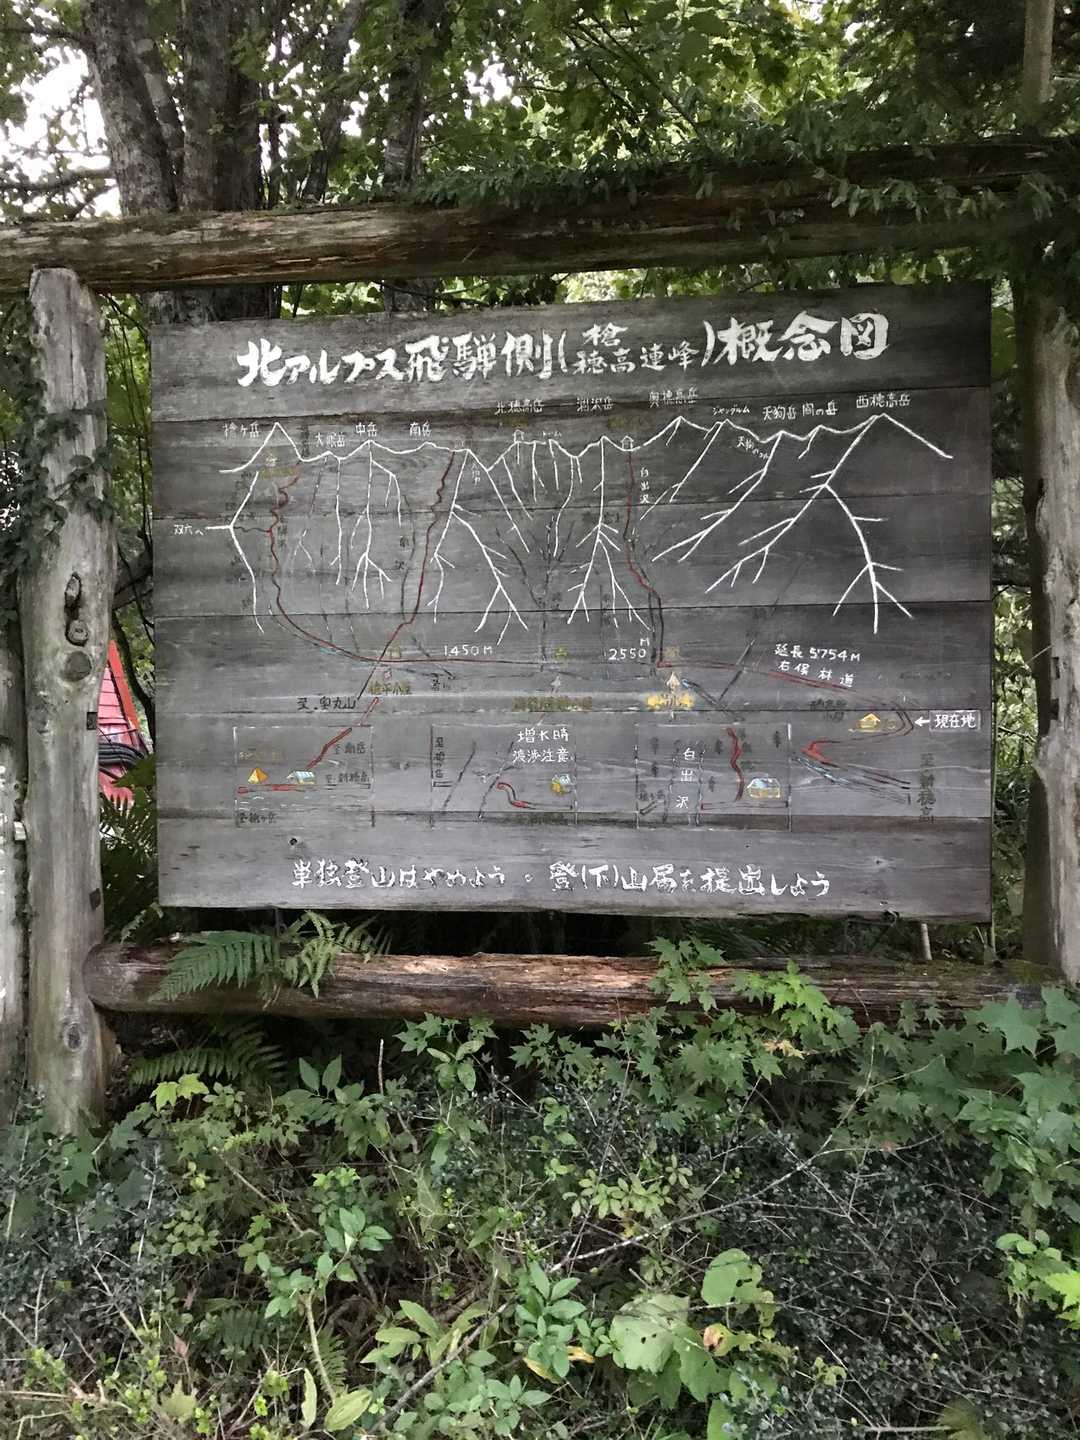 北アルプス飛騨側(槍穂高連峰)概念図
北穂高岳 涸沢岳 奥穂高岳 ジャンダルム 天狗岳 間の岳 西穂高岳
槍ヶ岳 大喰岳 中岳 南岳
ドーム
白出沢
双六へ
南沢
1.450M
2.550M
延長5754M
右俣林道
槍平小屋
至.奥丸山
←現在地
増水時
渡渉注意
白出沢
至南岳
至新穂高
至槍ヶ岳
至新穂高
単独登山はやめよう。登(下)山届を提出しよう